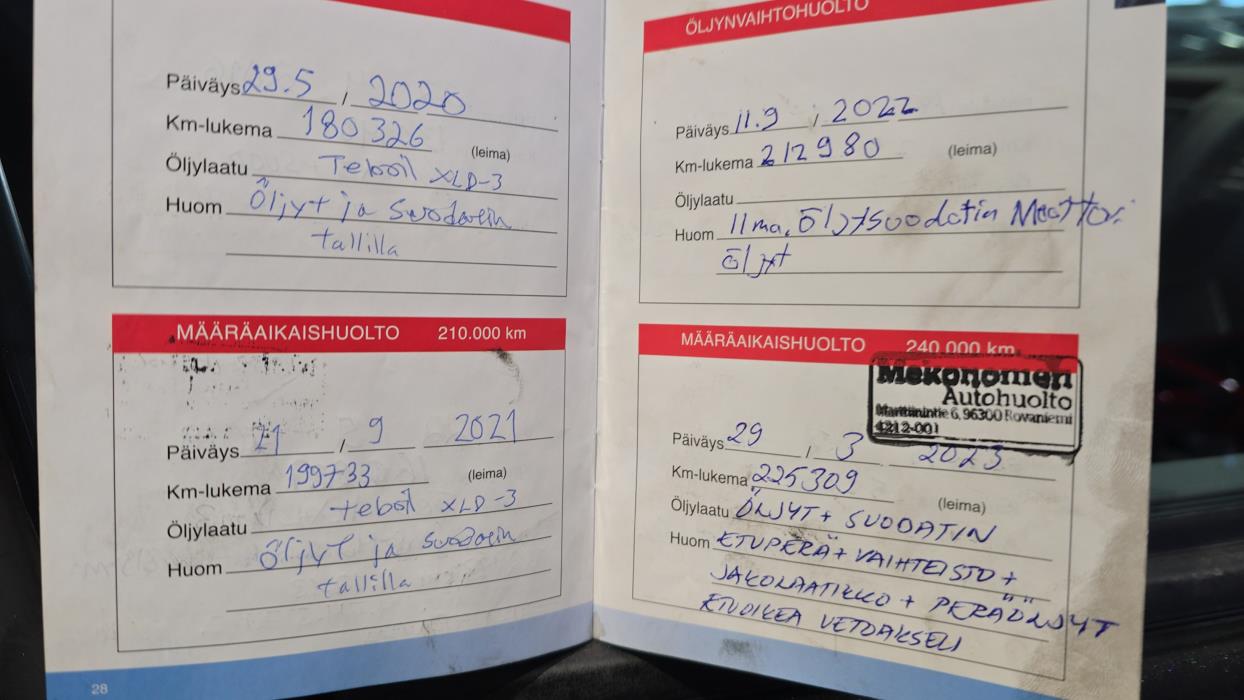 Päiväys 29.5 / 2020
Km-lukema 180 326
(leima)
Öljylaatu Teboil XLD-3
Huom Öljyt ja suodatin
tallilla
MÄÄRÄAIKAISHUOLTO 210.000 km
Päiväys 21 / 9 2021
Km-lukema 199733
(leima)
Öljylaatu teboil XLD-3
Huom Öljyt ja suodatin
tallilla
28
ÖLJYNVAIHTOHUOLTO
Päiväys 11.9 / 2022
Km-lukema 212980
(leima)
Öljylaatu
Huom Ilma, öljysuodatin Moottori
öljyt
MÄÄRÄAIKAISHUOLTO 240.000 km
Mekonomen
Autohuolto
Marttiinintie 6, 96300 Rovaniemi
4212-001
Päiväys 29 / 3 2023
Km-lukema 225309
(leima)
Öljylaatu ÖLJYT + SUODATIN
Huom ETUPERÄ + VAIHTEISTO +
JAKOLAATIKKO + PERÄÖLJYT
ETUOIKEA VETOAKSELI